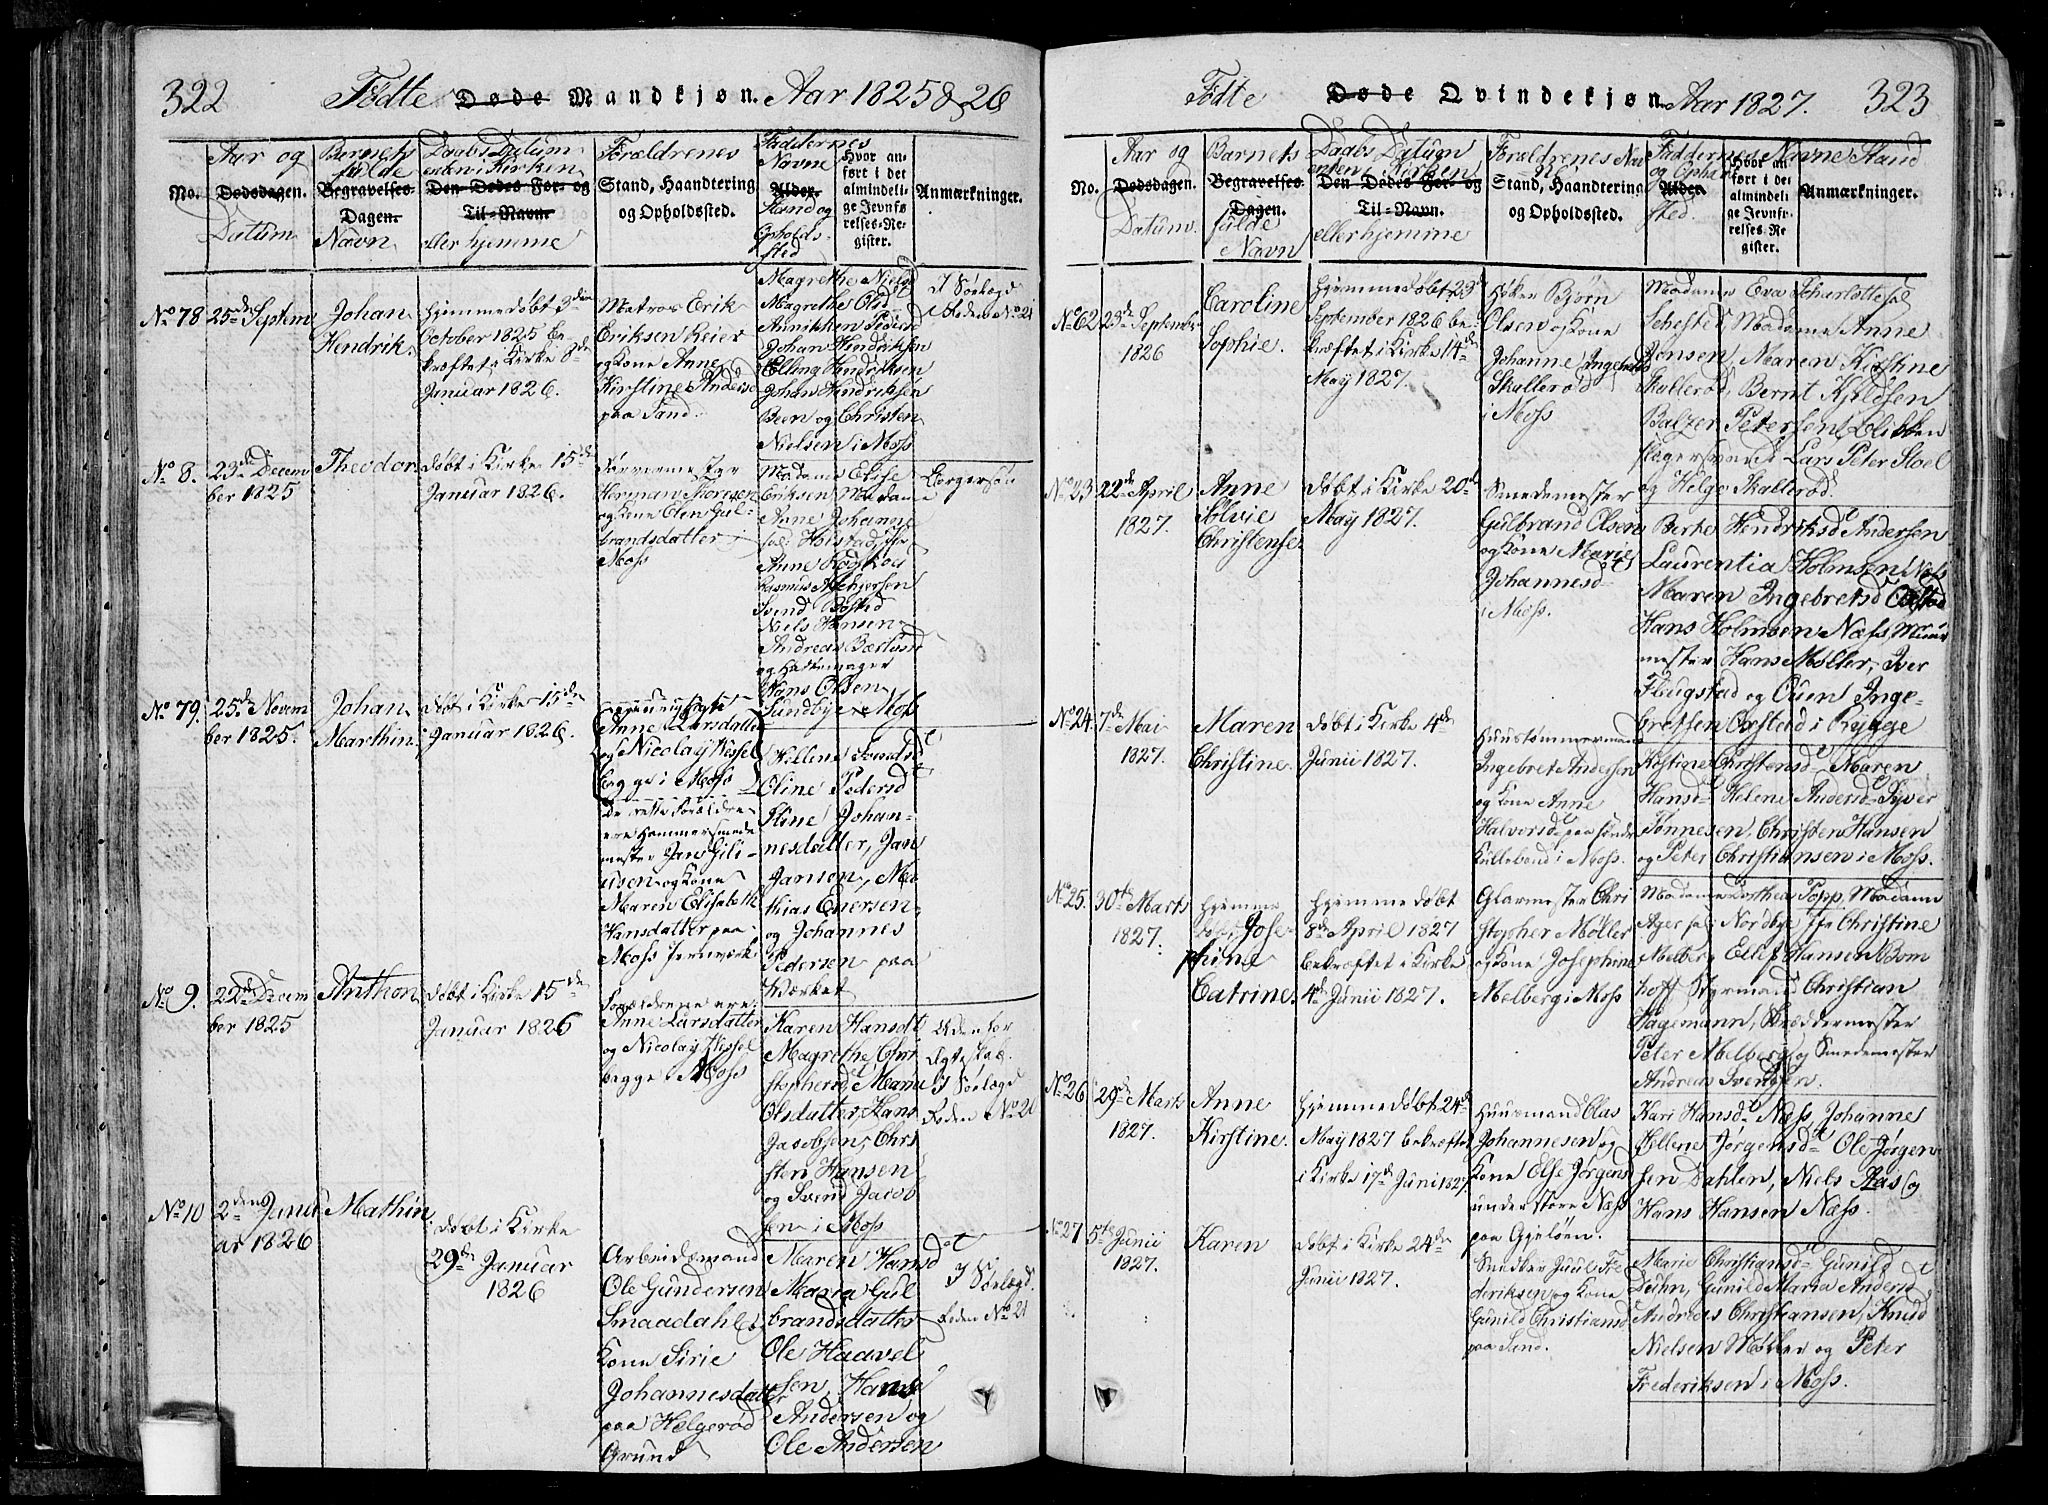 322 Fødte Døde Mandkjøn. Aar 1825 & 26
No.
Aar og
Dødsdagen.
Datum
Barnets
fulde
Begravelses-
Dagen.
Navn
Daabs Datum
enten i Kirken
Den Dødes For- og
Til-Navn.
eller hjemme
Forældrenes
Stand, Haandtering
og Opholdssted.
Faddernes
Navne
Alder.
Stand og
Opholds-
sted
Hvor an-
ført i det
almindeli-
ge Jevnfø-
relses-Re-
gister.
Anmærkninger.
No 78
25de Septem
Johan
Hendrik.
Hjemmedøbt 3die
October 1825 be
kræftet i Kirke 8de
Januar 1826.
Matros Erik
Eriksen Reier
og Kone Anne
Kirstine Anders
paa Sand.
Magrethe Niels
Magrethe Olsd
Annikken Peders
Johan Hendriksen
Elling Hendriksen
Johan Hendriksen
Been og Christen
Nielsen i Moss
No 8.
23de Decem
ber 1825
Theodor.
døbt i Kirke 15de
Januar 1826.
Herman Thoresen
og Kone Olen Gul-
brandsdatter i
Moss
Madame Elise
Eriksen Madam
Anne Johanne
Anne
Rasmus
Svend
Niels Hansen
Andreas
og Hattemager
Hans Olsen
Sundbye Moss
No 79.
25de Novem
ber 1825.
Johan
Marthin.
døbt i Kirke 15de
Januar 1826.
Anne Larsdatter
og Nicolay Wessel
begge i Moss
De rette Forældre
ere Hammersmede
mester Jans Gili-
usen og Kone
Maren Elisabeth
Hansdatter paa
Moss Jernværk
Hellene Svendsd
Oline Pedersd
Eline Johan-
nesdatter, Jans
Jansen, Ma
thias Enersen
og Johannes
Pedersen paa
Værket
No 9.
22de Decem
ber 1825
Anthon
døbt i Kirke 15de
Januar 1826
Forældrene ere
Anne Larsdatter
og Nicolay Wessel
begge i Moss
Karen Hansdt
Magrethe Chri
stophersd Maria
Olsdatter, Hans
Jacobsen, Chri
sten Hansen
og Svend Jacob
sen i Moss
Uden for
Ægteskab.
No 10
2den Janu
ar 1826
Mathin
døbt i Kirke
29de Januar
1826
Arbeidsmand
Ole Gundersen
Smaadahl og
Kone Sirie
Johannesdatter
paa Helgerød
Grund
Maren Hansd
Maria Gul
brandsdatter
Ole Haavel
sen, Hans
Andersen og
Ole Andersen
Fødte Døde Qvindekjøn. Aar 1827. 323
No.
Aar og
Dødsdagen.
Datum.
Barnets
Begravelses-
Dagen.
fulde
Navn
Daabs Datum
enten i Kirken
Den Dødes For- og
Til-Navn.
eller hjemme
Forældrenes Nav
Stand, Haandtering
og Opholdssted.
Faddernes Navne Stand
og Ophold
Alder.
sted.
Hvor an-
ført i det
almindeli-
ge Jevnfø-
relses-Re-
gister.
Anmærkninger.
No 62
23de Septembr
1826
Caroline
Sophie.
Hjemmedøbt 29de
September 1826 be-
kræftet i Kirke 14de
May 1827.
Høker Bjørn
Olsen og Kone
Johanne
Skallerød
i Moss
Madame Eva Scharlotte sal
Sehested, Madame Anne
Jensen, Maren Kirstine
Skallerød, Bernt Kjeldsen
Balzer Petersen
Lars Peter Stoel
og Helge Skallerød.
No 23
22de April
1827.
Anne
Sølvie
Christense.
Døbt i Kirke 20de
May 1827.
Smedemester
Gulbrand Olsen
og Kone Marie
Johannesd
i Moss.
Berthe Hendriksd Andersen
Laurentia Holmsen Næs
Maren Ingebretsd
Hans Holmsen Næss, Muur
mester Hans Møller, Iver
Flaugstad og Ouen Inge-
bretsen Oxstad i Rygge
No 24.
7de Mai
1827.
Maren
Christine.
døbt i Kirke 4de
Junii 1827.
Huustømmermand
Ingebret Andersen
og Kone Anne
Halvorsd paa søndre
i Moss.
Kistine Christensd Maren
Hansd Helene Andersd Syver
Tønnesen, Christen Hansen
og Peter Christiansen i Moss.
No 25.
30te Marts
1827.
Hjemme
døbt Jose-
phine
Catrine.
Hjemmedøbt
8de April 1827
bekræftet i Kirke
4de Junii 1827.
Glarmester Chri
stopher Møller
og Kone Josephine
Melberg i Moss
Madame Dorthea Popp, Madam
Ager sal: Nordbye, Christine
Melberg Ellef Hansen Bom
hoff Styrmand Christian
Hagemann, Skræddermester
Peter Melberg og Smedemester
Andreas Svendsen.
No 26
29de Marts
1827.
Anne
Kirstine.
Hjemmedøbt 24de
May 1827 bekræftet
i Kirke 17de Juni 1827
Huusmand Clas
Johannesen og
Kone Else Jørgens
under store Næss
paa Gjeløen.
Kari Hansd Næss, Johanne
Hellene Jørgensd Ole Jørgen
sen Dahlen, Niels Aas og
Hans Hansen Næss.
No 27
5te Junii
1827.
Karen
døbt i Kirke 24de
Junii 1827.
Snedker Juul Fre
deriksen og Kone
Gunild Christiansd
paa Sand.
Marie Christiansd Gunild
Duhn, Gunild Maria Andersd
Andreas Christiansen, Knud
Nielsen Møller og Peter
Frederiksen i Moss.